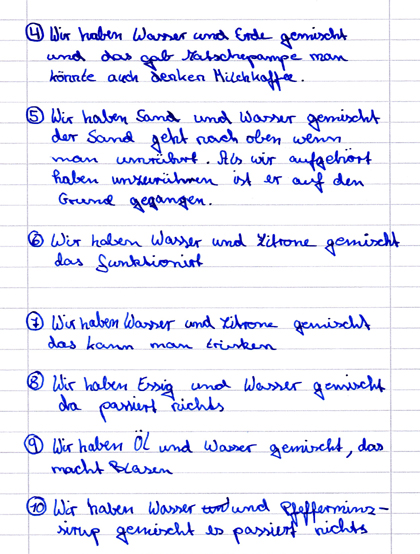 ④ Wir haben Wasser und Erde gemischt
und das gab Matschepampe man
könnte auch denken Milchkaffee.
⑤ Wir haben Sand und Wasser gemischt
der Sand geht nach oben wenn
man umrührt. Als wir aufgehört
haben umzurühren ist er auf den
Grund gegangen.
⑥ Wir haben Wasser und Zitrone gemischt
das funktioniert
⑦ Wir haben Wasser und Zitrone gemischt
das kann man trinken
⑧ Wir haben Essig und Wasser gemischt
da passiert nichts
⑨ Wir haben Öl und Wasser gemischt, das
macht Blasen
⑩ Wir haben Wasser und und Pfefferminz-
sirup gemischt es passiert nichts